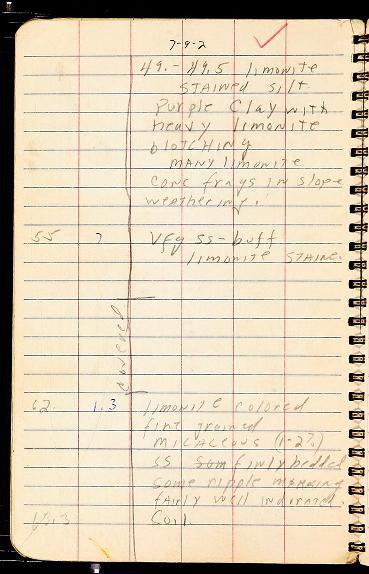 7-9-2
49. - 49.5 limonite
STAINED silt.
Purple Clay with
heavy limonite
blotching
MANY limonite
conc frags in slope
weathering.
55 7 Vfg ss - buff
limonite STAINED
covered
62. 1.3 limonite colored
fine grained
MICACEOUS (1-2%)
SS som finly bedded
some ripple marking
fairly well indurated.
Soil.